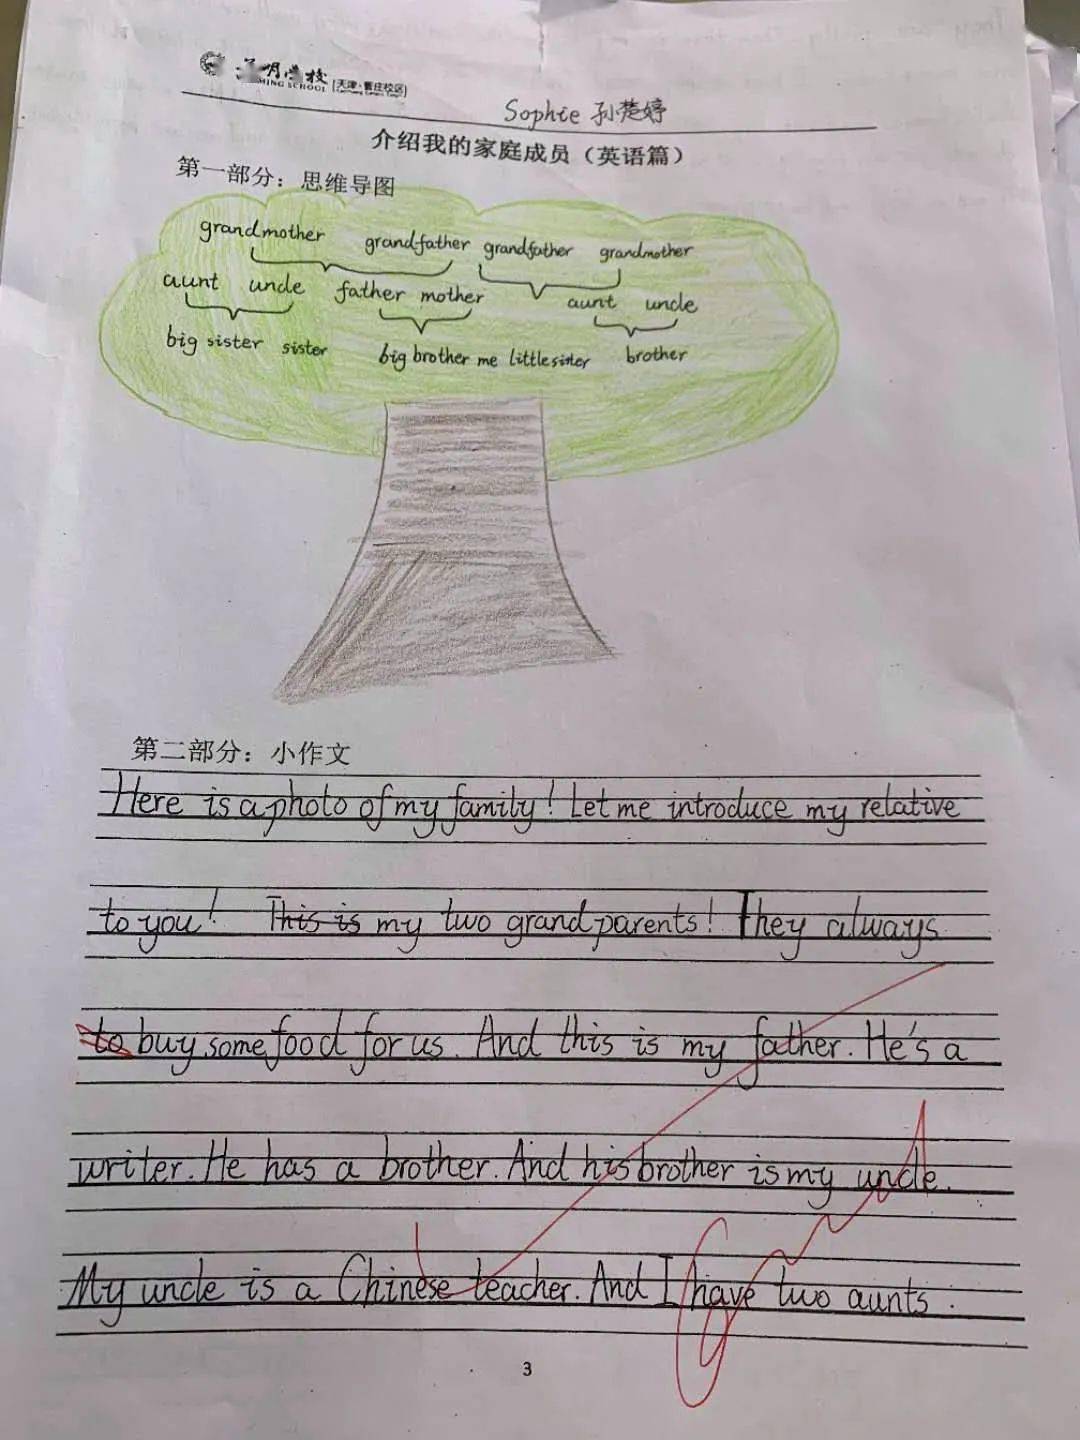 明学校
MING SCHOOL [天津·曹庄校区]
Sophie 孙楚婷
介绍我的家庭成员（英语篇）
第一部分：思维导图
grandmother grandfather grandfather grandmother
aunt uncle father mother aunt uncle
big sister sister big brother me little sister brother
第二部分：小作文
Here is a photo of my family! Let me introduce my relative
to you! This is my two grandparents! They always
to buy some food for us. And this is my father. He's a
writer. He has a brother. And his brother is my uncle.
My uncle is a Chinese teacher. And I have two aunts.
3